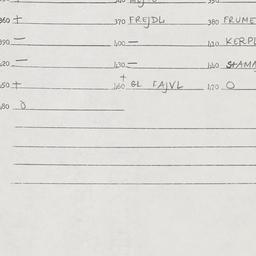 360 + 370 FREJDL 380 FRUME
390 – 400 – 410 KERPL
420 – 430 – 440 STAMM
450 + 460 + GL FAJVL 470 O
480 O